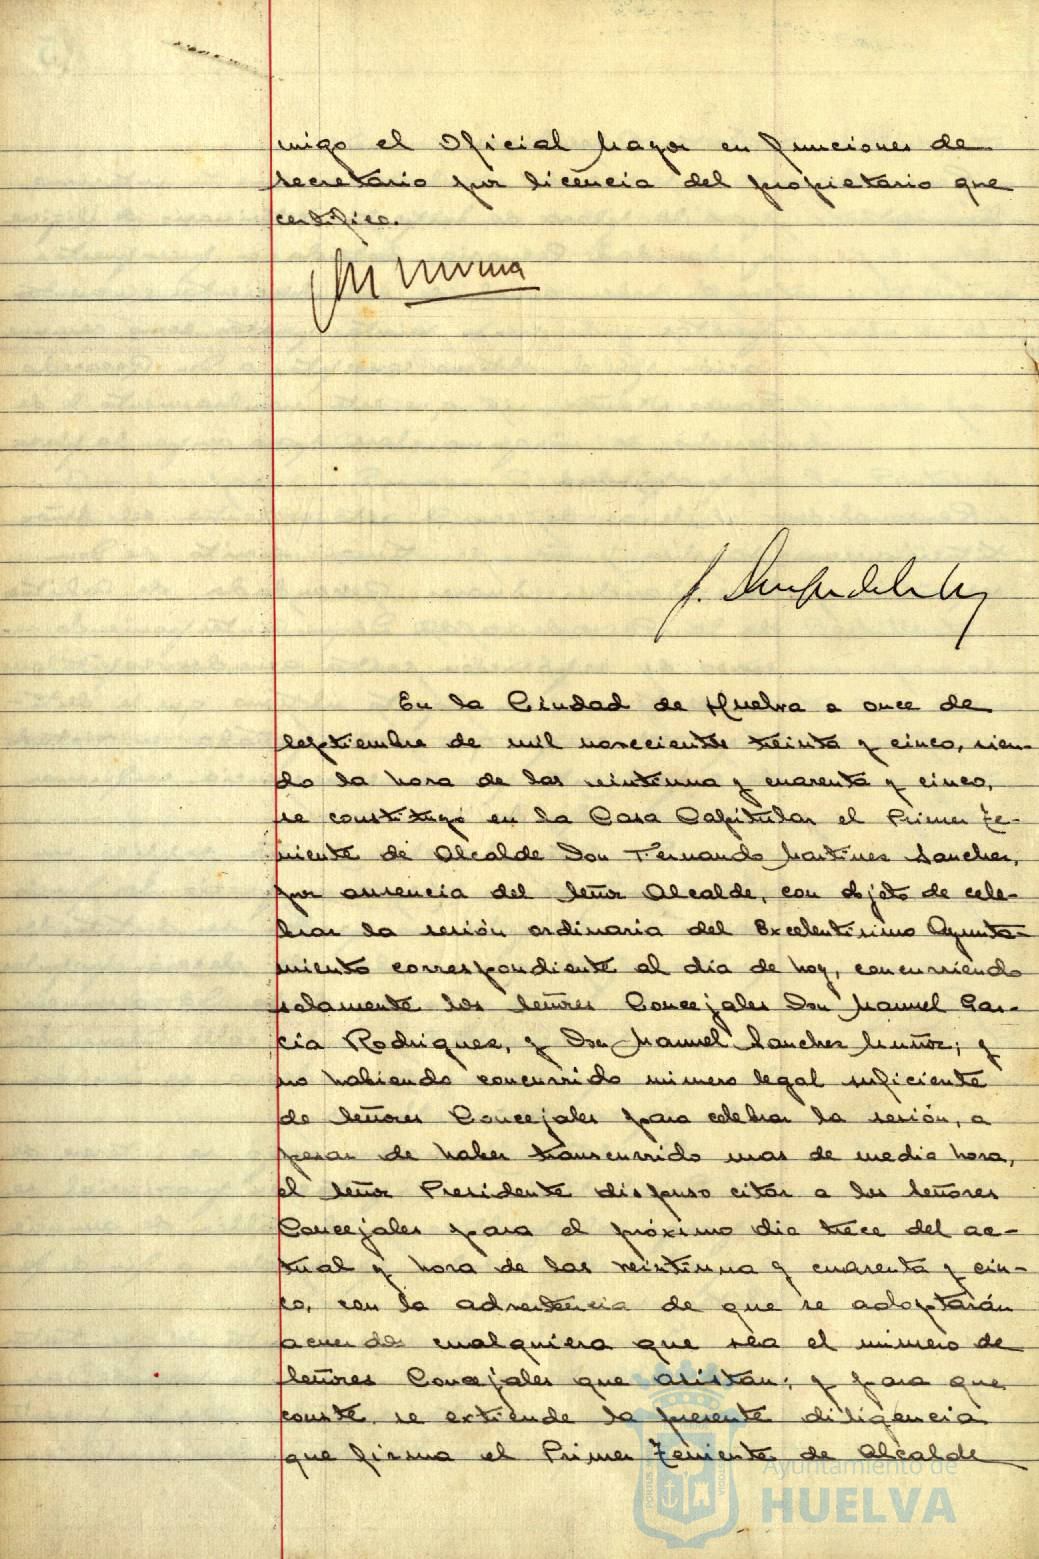 migo el Oficial Mayor en funciones de
Secretario por licencia del propietario que
certifico.
En la Ciudad de Huelva a once de
Septiembre de mil novecientos treinta y cinco, sien-
do la hora de las veintiuna y cuarenta y cinco,
se constituyó en la Casa Capitular el Primer Te-
niente de Alcalde Don Fernando Martinez Sanchez,
por ausencia del Señor Alcalde, con objeto de cele-
brar la sesión ordinaria del Excelentísimo Ayunta-
miento correspondiente al día de hoy, concurriendo
solamente los Señores Concejales Don Manuel Gar-
cía Rodriguez, y Don Manuel Sanchez Muñoz; y
no habiendo concurrido número legal suficiente
de Señores Concejales para celebrar la sesión, a
pesar de haber transcurrido mas de media hora,
el Señor Presidente dispuso citar a los Señores
Concejales para el próximo dia trece del ac-
tual y hora de las veintiuna y cuarenta y cin-
co, con la advertencia de que se adoptarán
acuerdos cualquiera que sea el número de
Señores Concejales que asistan; y para que
conste se extiende la presente diligencia
que firma el Primer Teniente de Alcalde
Ayuntamiento de
HUELVA